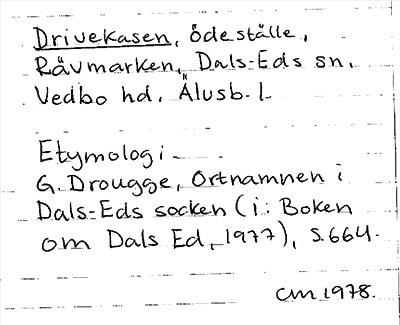 Drivekasen, ödeställe,
Rävmarken, Dals-Eds sn.
Vedbo hd. Älvsb. l.
Etymologi
G. Drougge, Ortnamnen i
Dals-Eds socken (i: Boken
om Dals Ed, 1977), S. 664.
CM 1978.